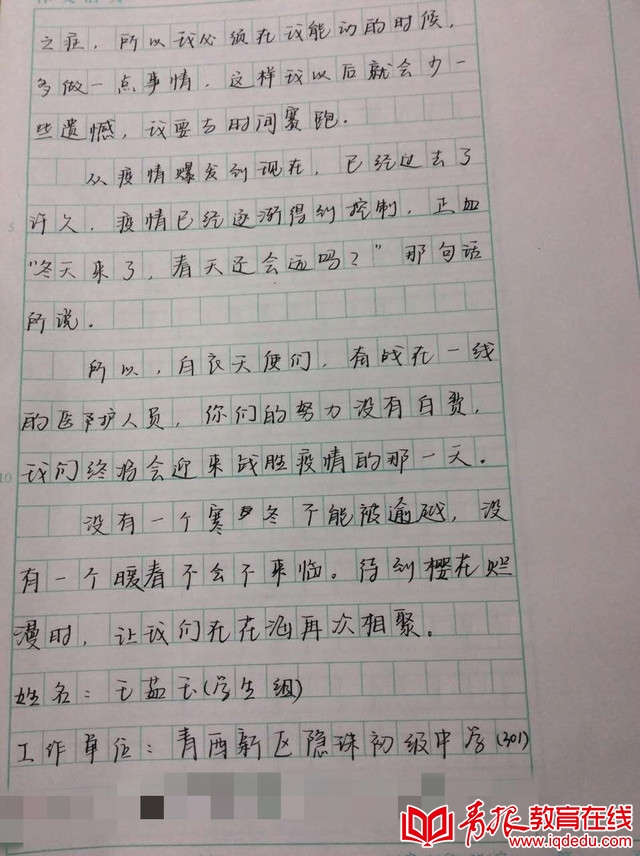 之症，所以我必须在我能动的时候，
多做一点事情，这样我以后就会少一
些遗憾，我要与时间赛跑.
从疫情爆发到现在，已经过去了
5
许久，疫情已经逐渐得到控制，正如
“冬天来了，春天还会远吗？”那句话
所说.
所以，白衣天使们，奋战在一线
的医护人员，你们的努力没有白费，
10
我们终将会迎来战胜疫情的那一天.
没有一个寒冬不能被逾越，没
有一个暖春不会不来临。待到樱花烂
漫时，让我们在花海再次相聚。
姓名：王茹玉(学生组)
工作单位：青西新区隐珠初级中学(301)
青报教育在线
www.iqdedu.com